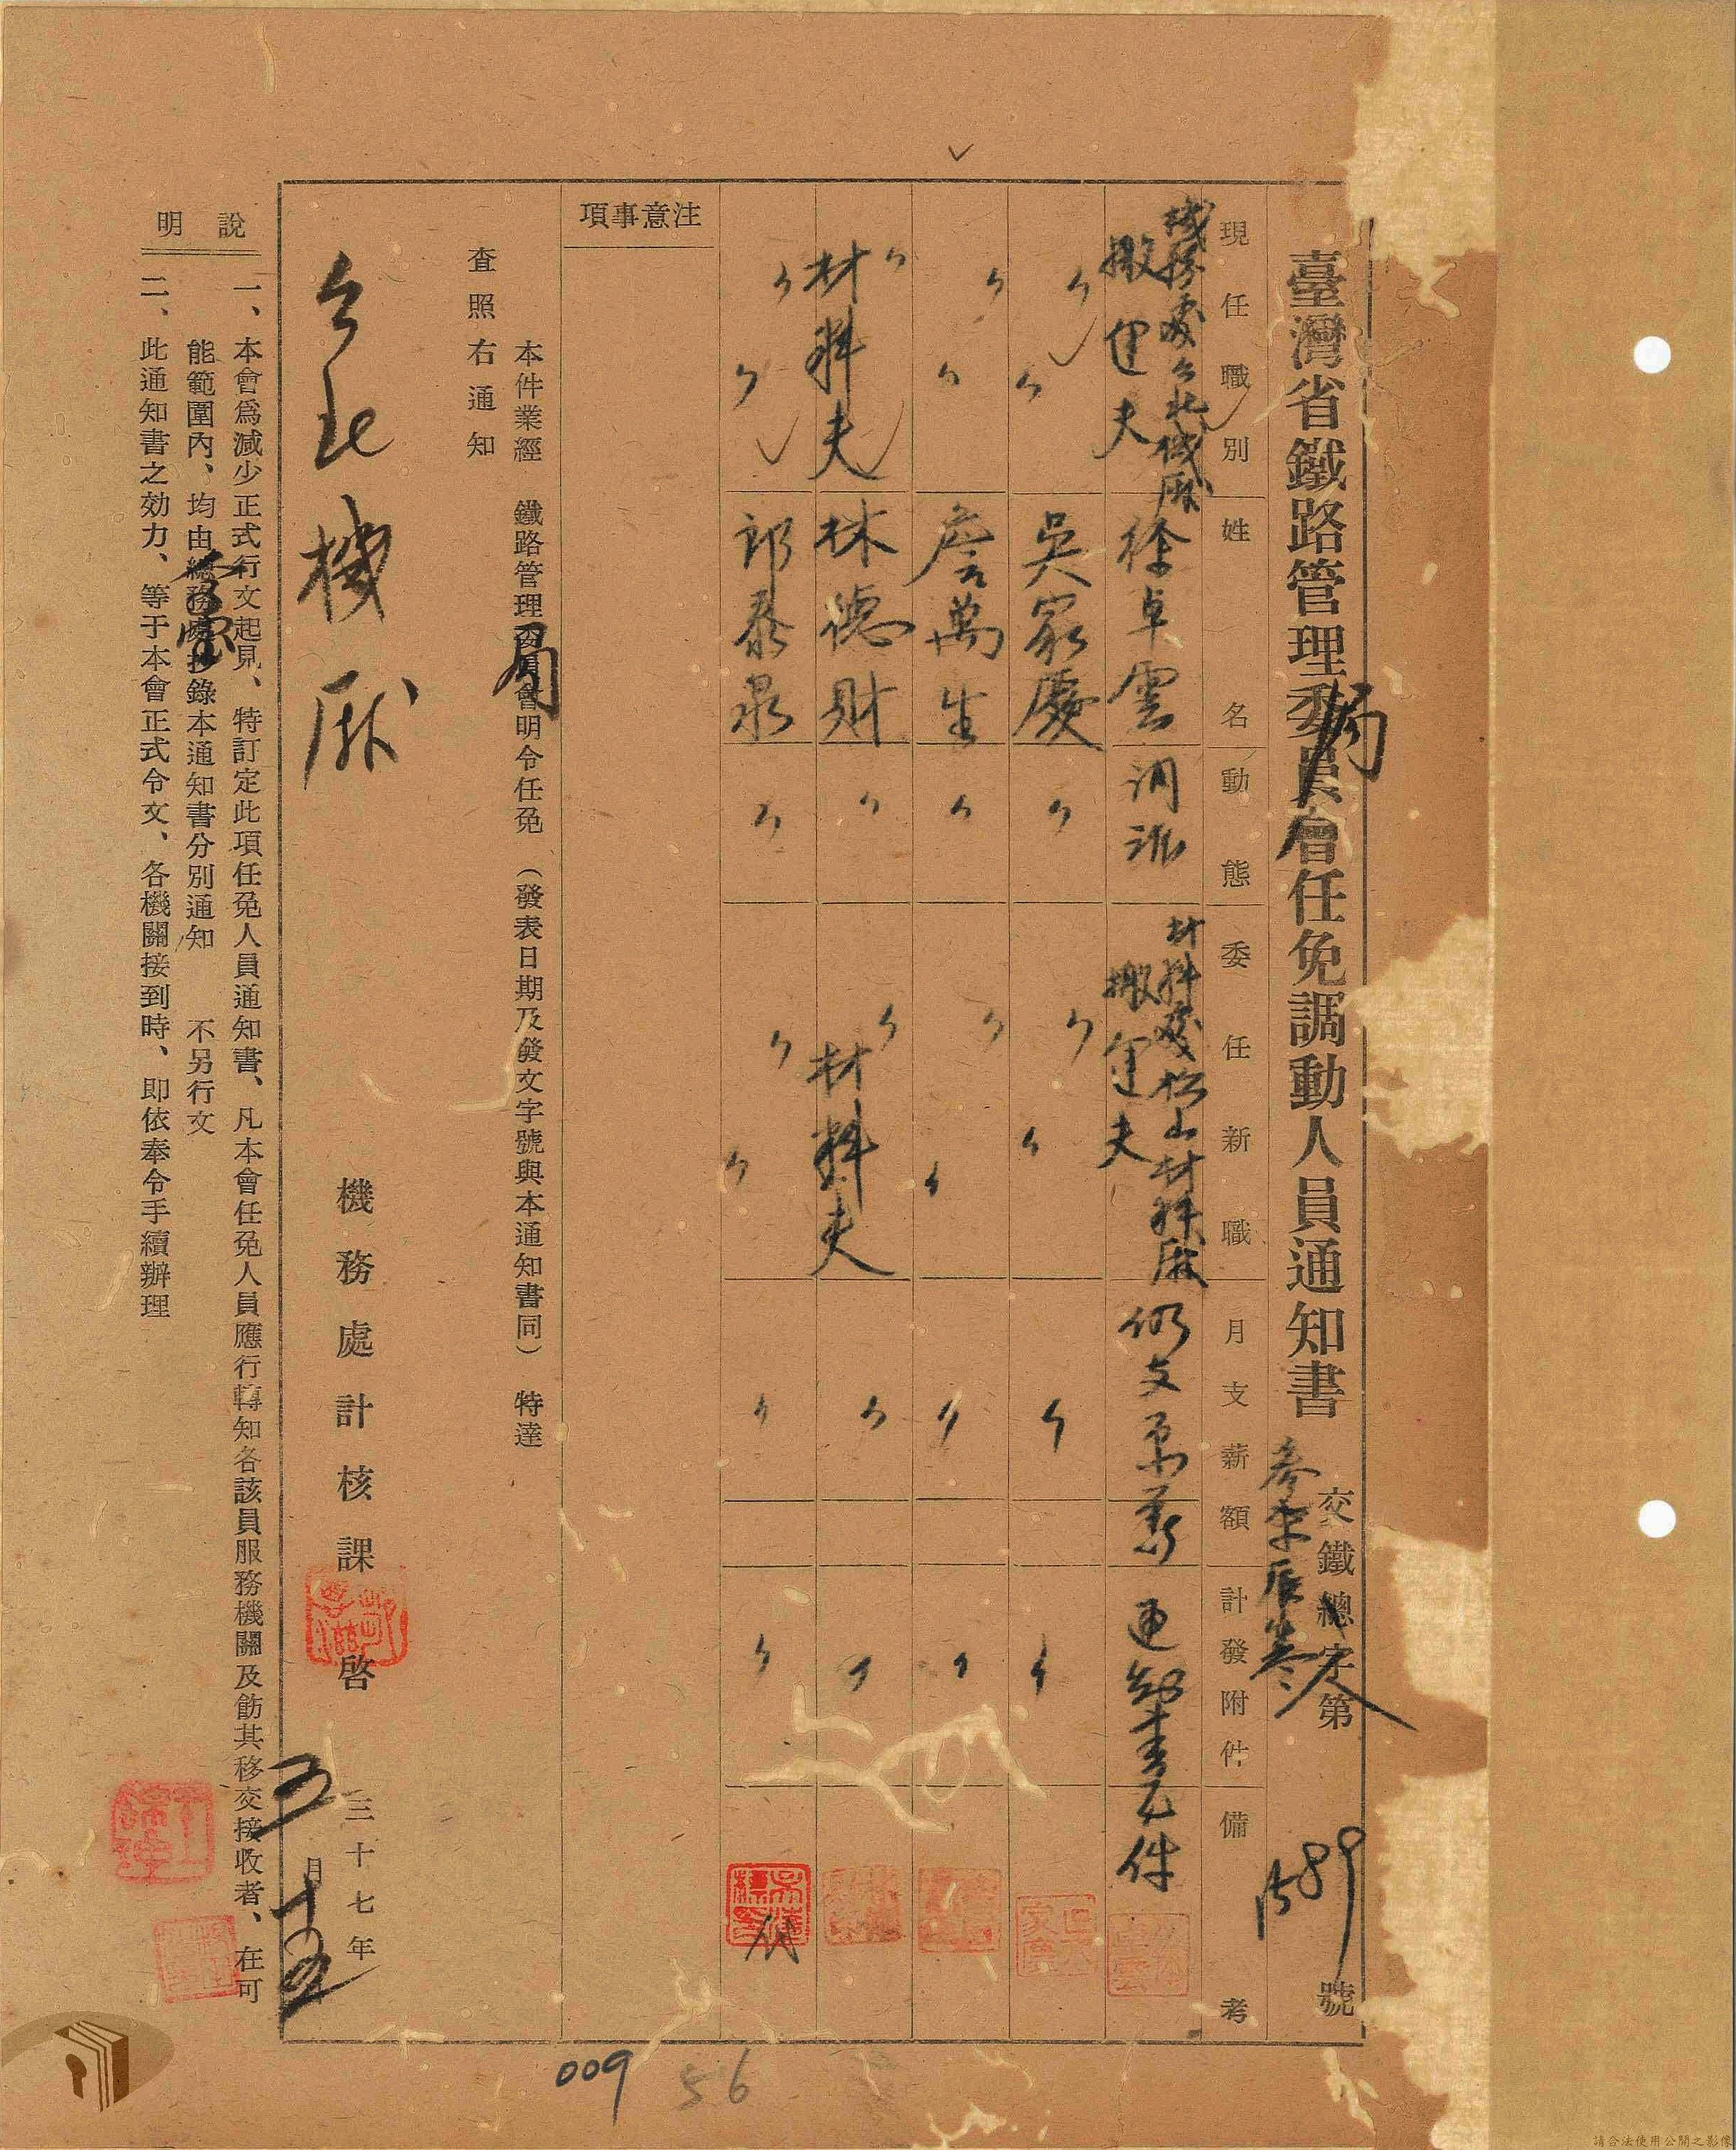 臺灣省鐵路管理委員會任免調動人員通知書
局
交鐵總字第 1589 號
現任職別
姓名
動態
委任新職
月支薪額
計發附件
備考
機務處台北機廠
搬運夫
徐卓雲
調派
材料處松山材料廠
搬運夫
仍支原薪
通知書乙件
〃 〃 吳家慶 〃 〃 〃 〃 〃
〃 〃 詹萬生 〃 〃 〃 〃 〃
〃 材料夫 林德財 〃 〃 材料夫 〃 〃
〃 〃 邱泰泉 〃 〃 〃 〃 〃
代
注意事項
本件業經 鐵路管理委員會明令任免 (發表日期及發文字號與本通知書同) 特達
局
查照右通知
台北機廠
機務處計核課 啓
三十七年五月十五
說明
一、本會爲減少正式行文起見、特訂定此項任免人員通知書、凡本會任免人員應行轉知各該員服務機關及飭其移交接收者、在可
能範圍內、均由總務處抄錄本通知書分別通知 不另行文
二、此通知書之効力、等于本會正式令文、各機關接到時、卽依奉令手續辦理
009
56
請合法使用公開之影像